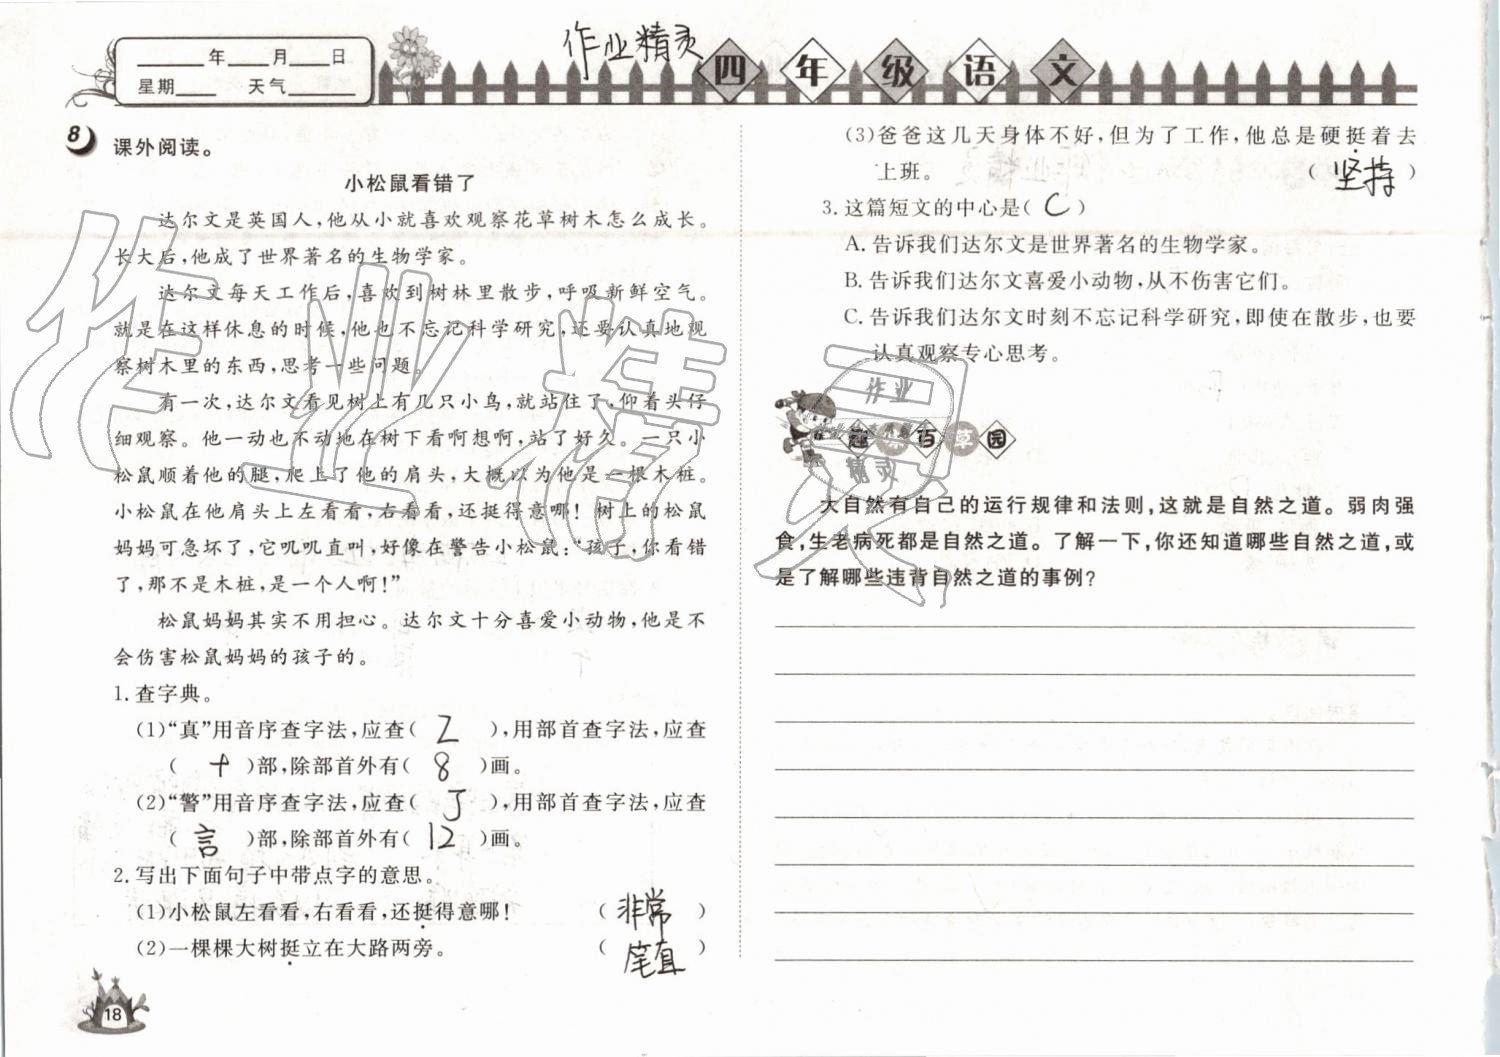 ____年____月____日
星期____ 天气____
作业精灵
四年级语文
8 课外阅读。
小松鼠看错了
达尔文是英国人,他从小就喜欢观察花草树木怎么成长。
长大后,他成了世界著名的生物学家。
达尔文每天工作后,喜欢到树林里散步,呼吸新鲜空气。
就是在这样休息的时候,他也不忘记科学研究,还要认真地观
察树木里的东西,思考一些问题。
有一次,达尔文看见树上有几只小鸟,就站住了,仰着头仔
细观察。他一动也不动地在树下看啊想啊,站了好久。一只小
松鼠顺着他的腿,爬上了他的肩头,大概以为他是一根木桩。
小松鼠在他肩头上左看看,右看看,还挺得意哪!树上的松鼠
妈妈可急坏了,它叽叽直叫,好像在警告小松鼠:“孩子,你看错
了,那不是木桩,是一个人啊!”
松鼠妈妈其实不用担心。达尔文十分喜爱小动物,他是不
会伤害松鼠妈妈的孩子的。
1.查字典。
(1)“真”用音序查字法,应查( Z ),用部首查字法,应查
( 十 )部,除部首外有( 8 )画。
(2)“警”用音序查字法,应查( J ),用部首查字法,应查
( 言 )部,除部首外有( 12 )画。
2.写出下面句子中带点字的意思。
(1)小松鼠左看看,右看看,还挺得意哪! ( 非常 )
(2)一棵棵大树挺立在大路两旁。 ( 笔直 )
18
(3)爸爸这几天身体不好,但为了工作,他总是硬挺着去
上班。 ( 坚持 )
3.这篇短文的中心是( C )
A.告诉我们达尔文是世界著名的生物学家。
B.告诉我们达尔文喜爱小动物,从不伤害它们。
C.告诉我们达尔文时刻不忘记科学研究,即使在散步,也要
认真观察专心思考。
作业
百草园
精灵
大自然有自己的运行规律和法则,这就是自然之道。弱肉强
食,生老病死都是自然之道。了解一下,你还知道哪些自然之道,或
是了解哪些违背自然之道的事例?
作业精灵